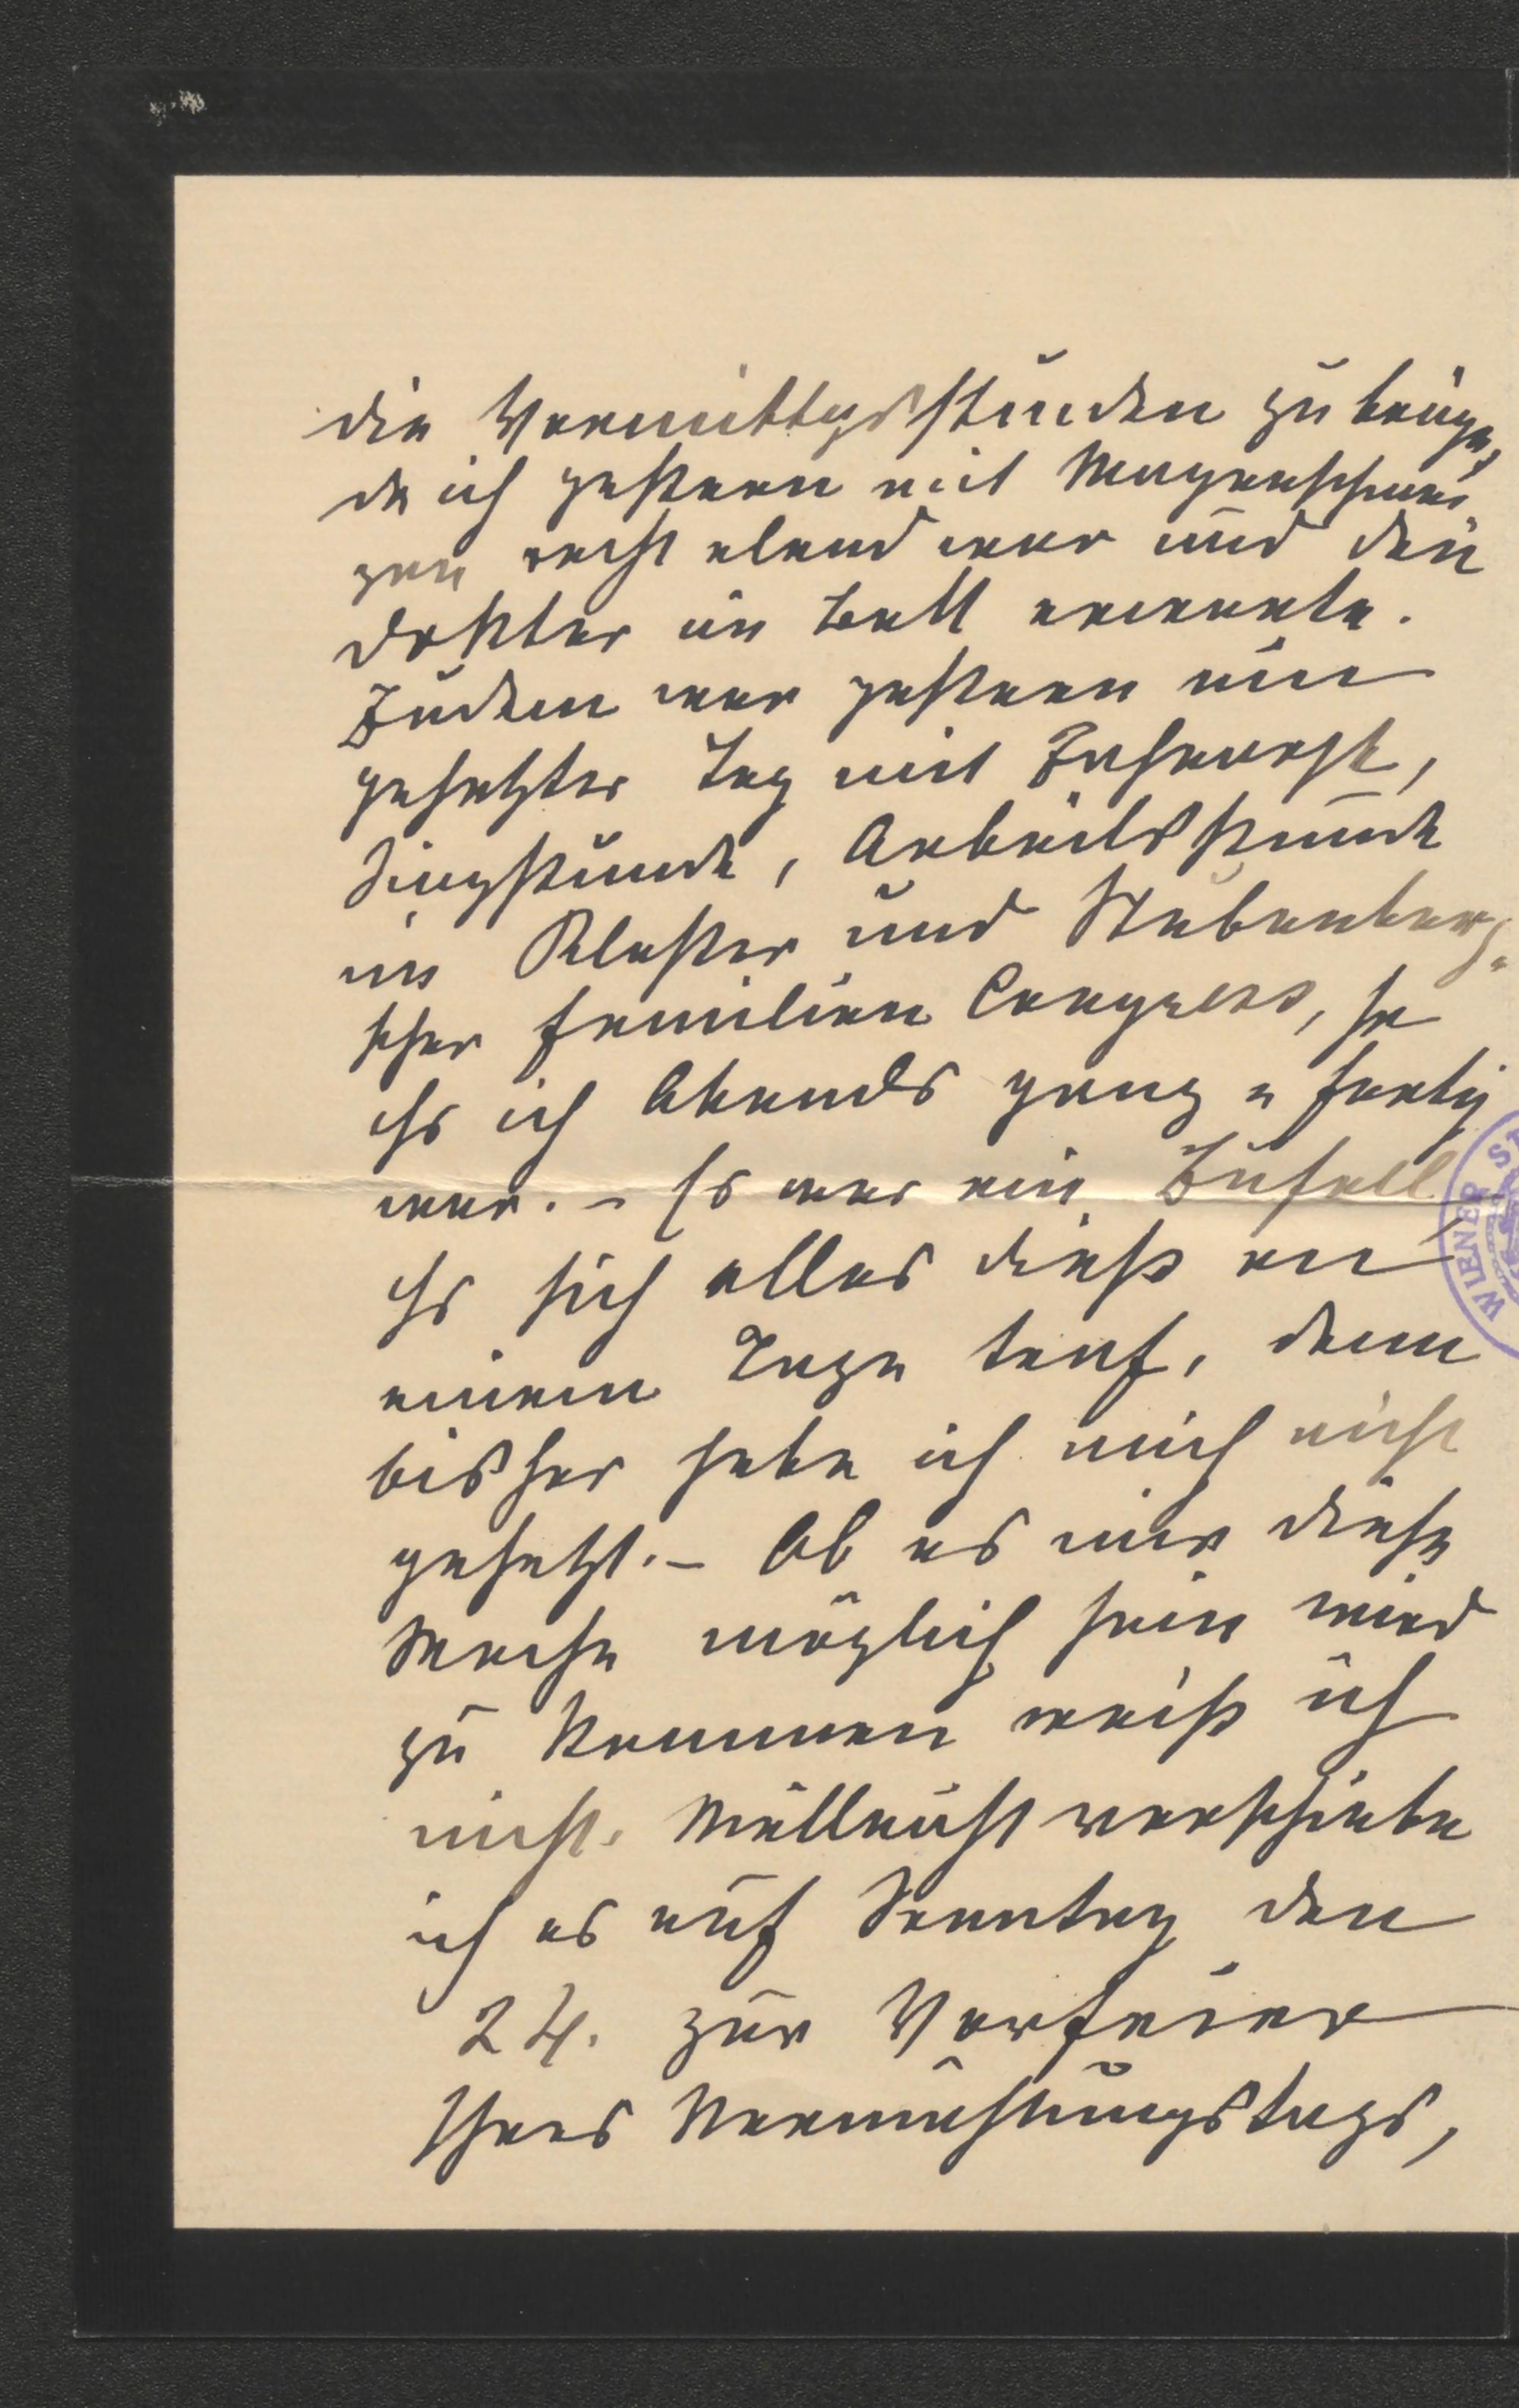 die Vormittagsstunden zu bringen,
da ich gestern mit Magenschmer
zen recht elend war und den
Doktor im Bett erwarte.
Zudem war gestern ein
gehetzter Tag mit Zahnarzt,
Singstunde, Arbeitsstunde
im Kloster und Stubenberg.
scher Familien Congress, so
ds ich Abends ganz a fertig
war. – Es war ein Zufall
ds sich alles dieß an
einem Tage traf, denn
bisher habe ich mich nicht
gehetzt. – Ob es mir diese
Woche möglich sein wird
zu kommen weiß ich
nicht. Vielleicht verschiebe
ich es auf Sonntag den
24. zur Vorfeier
Ihres Vermählungstags,
WIENER ST